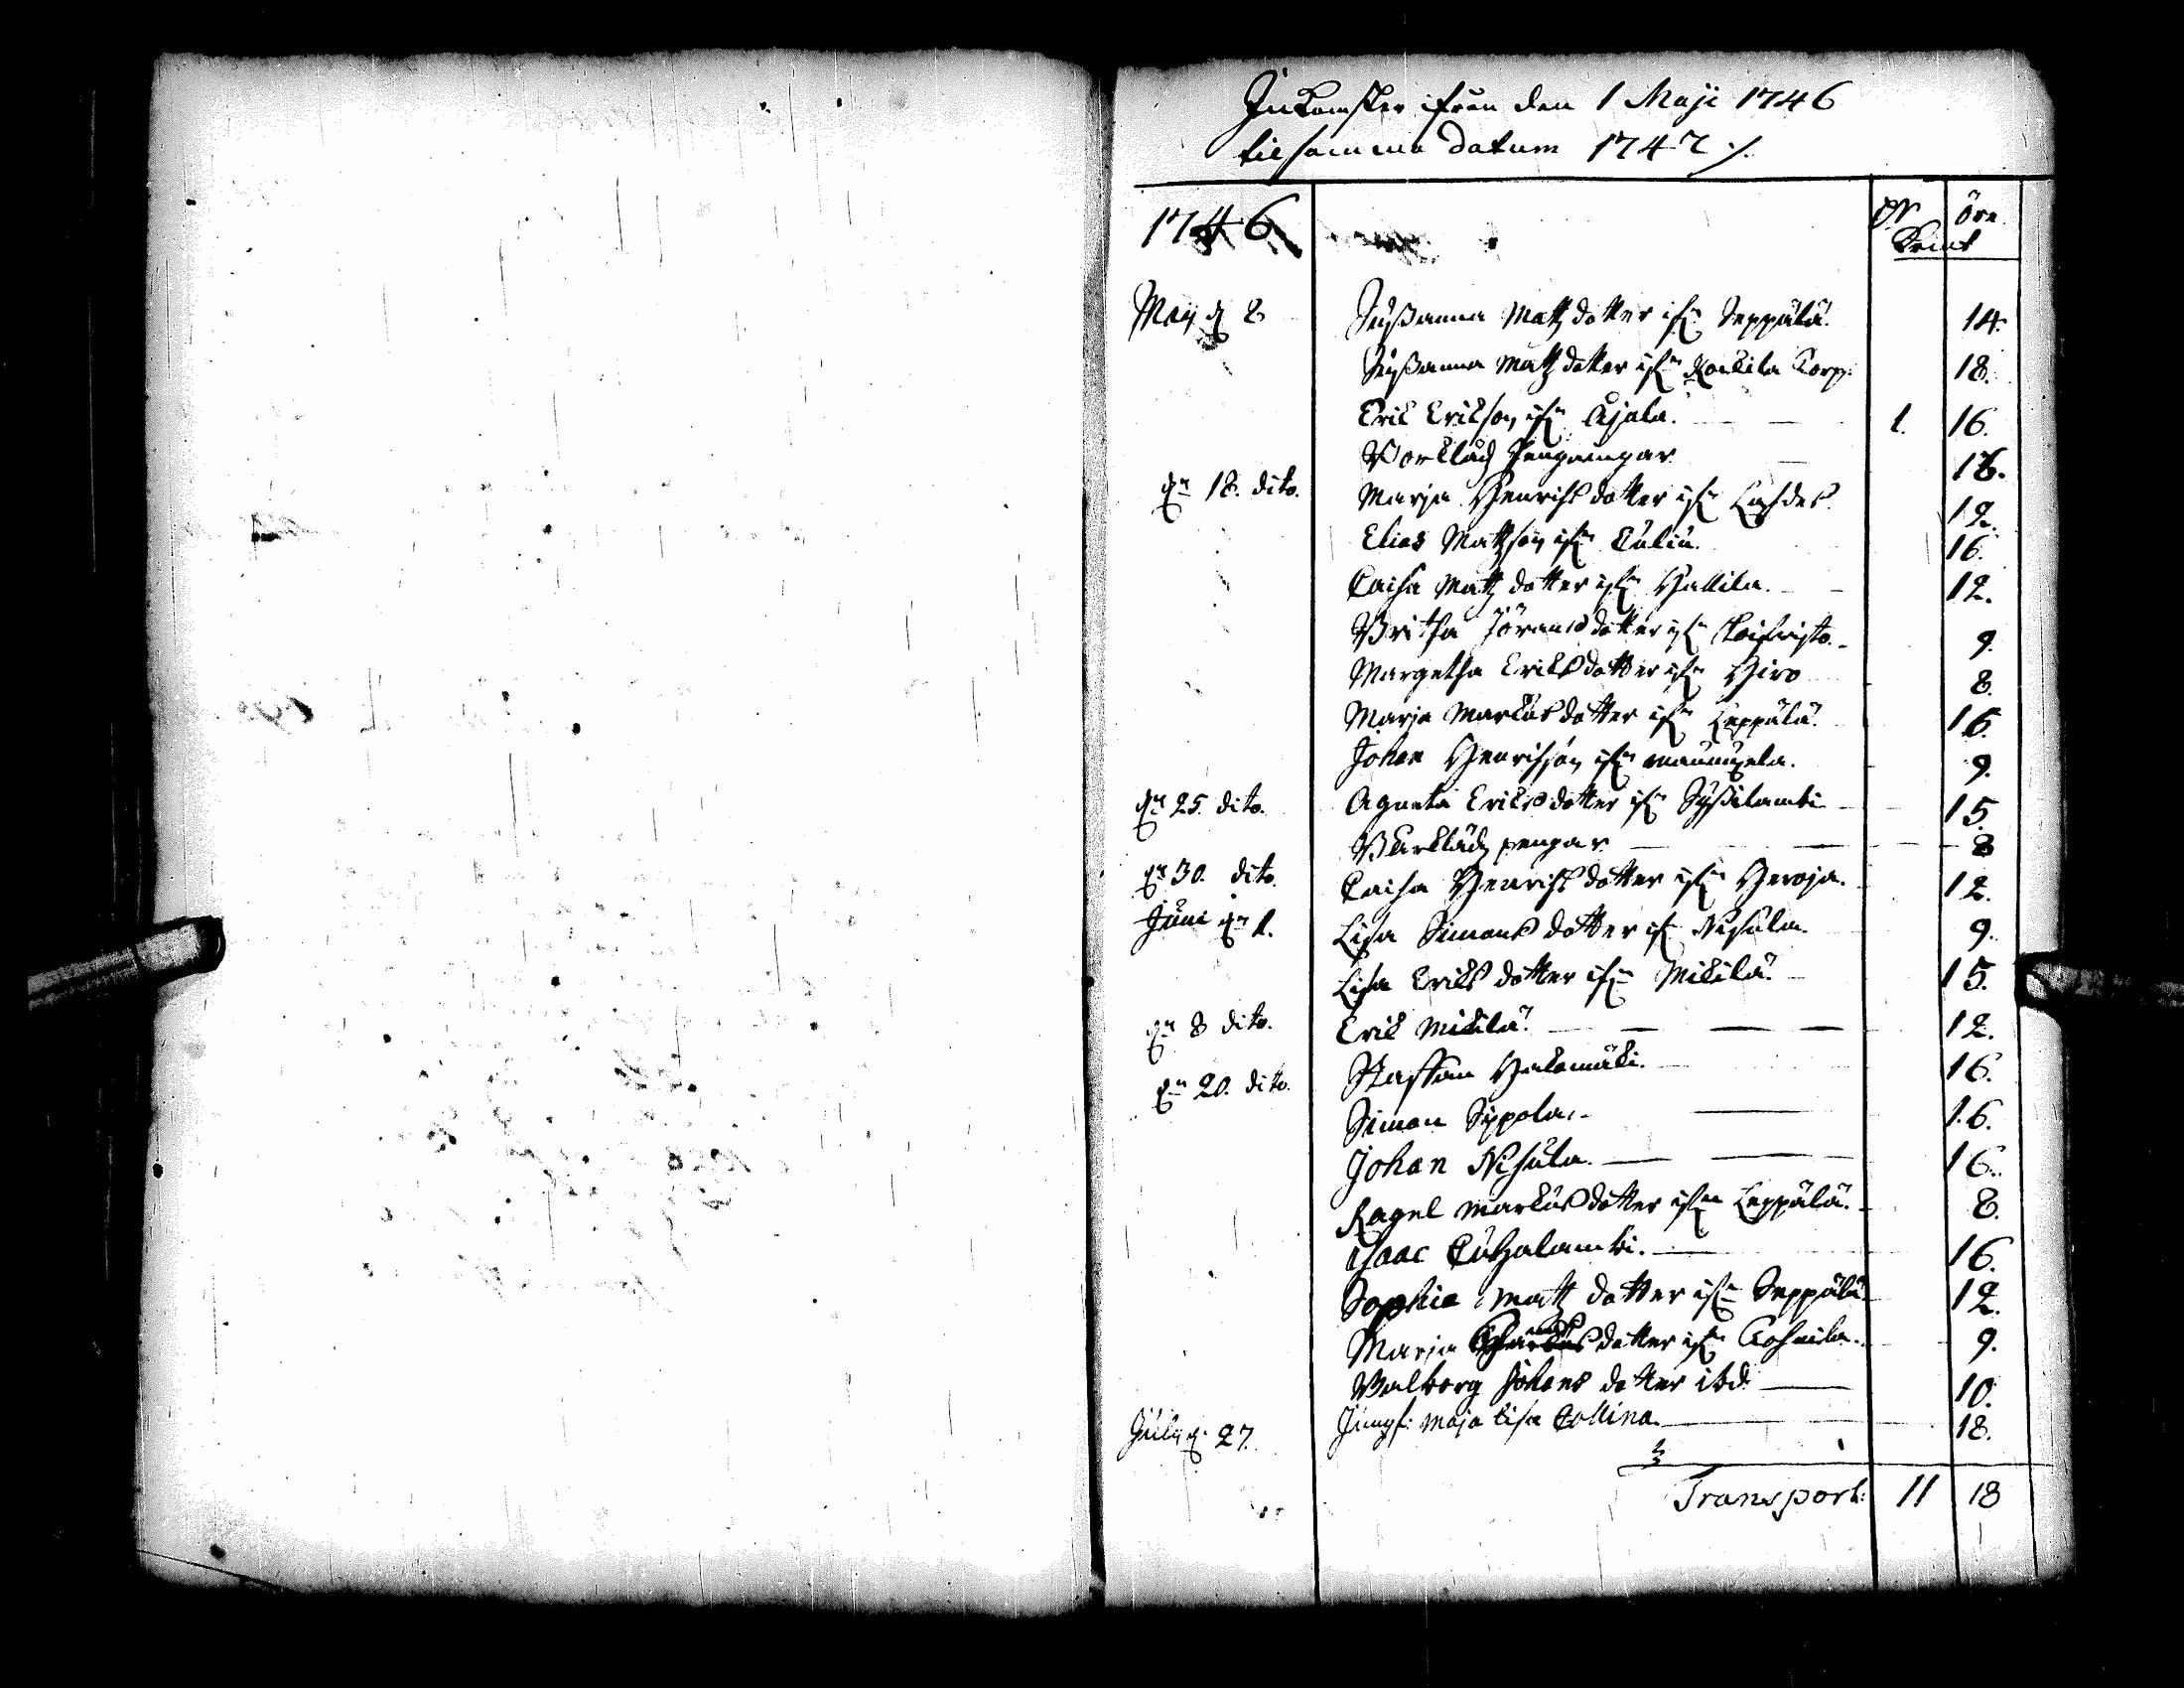 Inkomster ifrån den 1 Maji 1746
til samma datum 1747 ./.
1746
Dlr öre
Kmt
Maij d 8 Sußanna Matz dotter ifrn Seppälä. 14.
Sußanna Matz dotter ifrn Torp: 18.
Erik Erikson ifrn Ajala. 1. 16.
pengar 16.
dn 18. dito. Marja Henrichs dotter ifrn 12.
Elias Matzson ifrn 16.
Caisa Matz dotter ifrn Hallila. 12.
Britha Jörans dotter ifrn 9.
Margetha Eriks dotter ifrn Hiro 8.
Marja Markus dotter ifrn Leppälä. 16.
Johan Henrichson ifrn 9.
dn 25. dito. Agneta Eriks dotter ifrn 15.
pengar 8
dn 30. dito. Caisa Henrichs dotter ifrn Heroja. 12.
Juni dn 1. Lisa Simons dotter ifrn Nisula. 9.
Lisa Eriks dotter ifrn Mikilä. 15.
dn 8 dito. Erik Mikilä. 12.
dn 20. dito. Staffan 16.
Simon Sippola. 16.
Johan Nisula. 16.
Ragel Markus dotter ifrn Leppälä. 8.
Isaac 16.
Sophia Matz dotter ifrn Seppälä 12.
Marja dotter ifrn 9.
Walborg Johans dotter ibd. 10.
July d. 27. Jungf: Maja Lisa Collina. 18.
Transport: 11 18